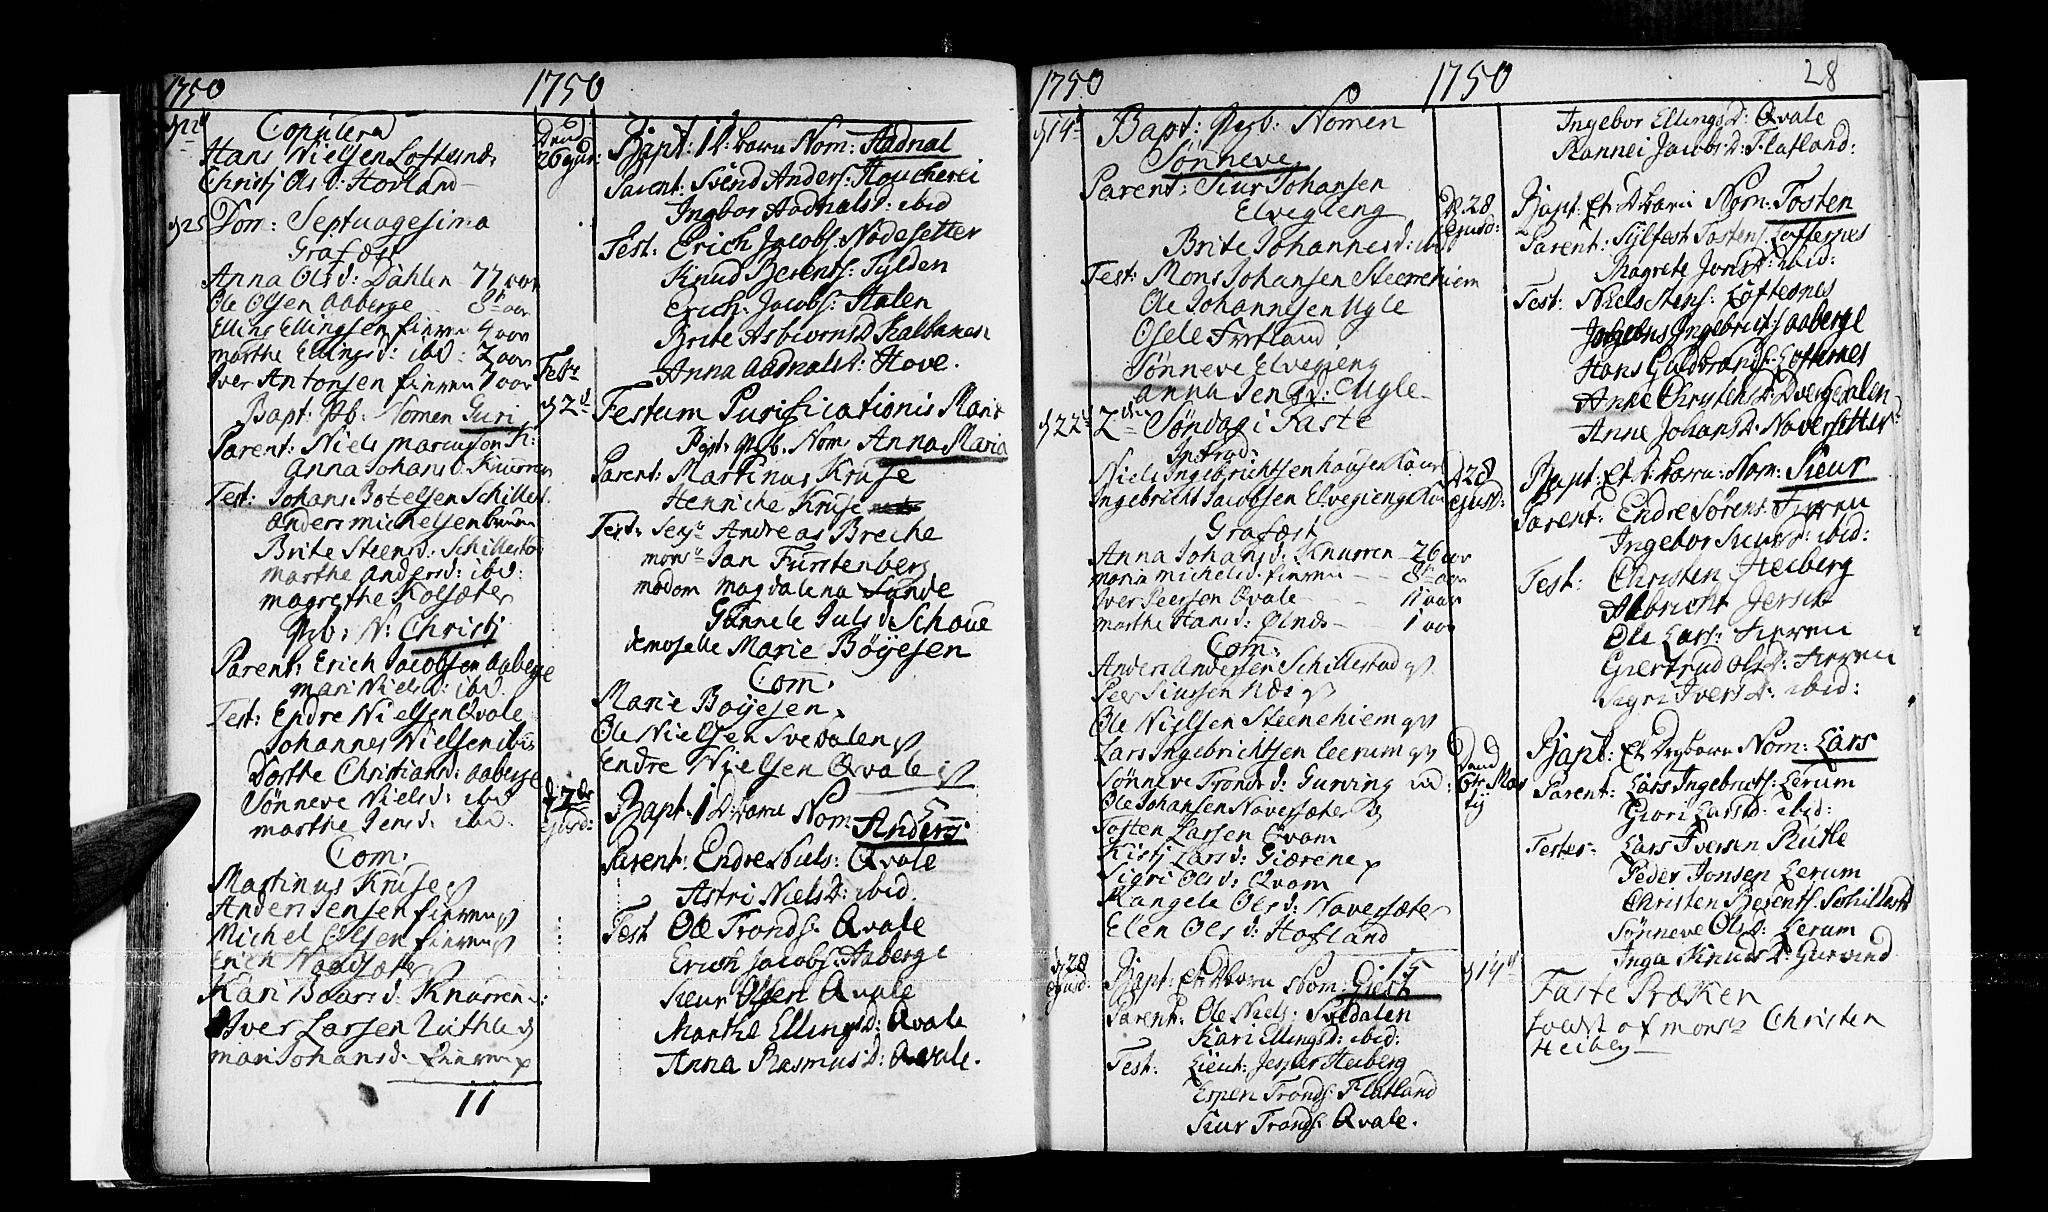 1750
1750
d 12
Copulera
Hans Nielsen Loftesnæs
Christj Ols d: Hovland
d 25 Dom: Septuagesima
Grafæst
Anna Ols d: Dahlen 77 aar
Ole Olsen Aaberge 8 aar
Elling Ellingsen finren 4 aar
marthe Ellings d: ibd: 2 aar
Iver Antonsen finren 7 aar
Bapt. Nomen Guri
Parent: Niels
Anna Johans d: Knurren
Test: Johans Botelsen Schillest
Anders michelsen
Brite Steens d: Schillestd
marthe Anders d: ibd:
magrethe Kolsæter
N: Christj
Parent: Erich Jacobsen Aaberge
mari Niels d: ibd:
Test: Endre Nielsen Qvale
Johannes Nielsen ibd
Dorthe Christians d: aaberge
Sønneve Niels d: ibd
marthe Jens d: ibd.
Com:
Martinus Kruse
Anders Jensen finren
Michel Olsen finren
Erich Navesæter
Kari Baars d: Knurren
Iver Larsen Ruthle
mari Johans d: finren
11
26 ejus:
Bapt: 1 D: barn Nom: Aadnal
Parent: Svend Anders: Houcherei
Ingbor Aadnals d: ibid
Test: Erich Jacobs: Nodesetter
Knud Berents: Tylden
Erich: Jacobs: Stalen
Brite Asbiorns d: Kalbanes
Anna Aadnals d: Hove.
Febr
d 2 Festum Purificationis Mariæ
Bapt. Nom: Anna Maria
Parent: Martinus Kruse
Henriche Kruse
Test: Sergt Andreas Breche
mons Jan Furstenberg
madam magdalena Sunde
Gunnele Juls d: Schoue
demoselle Marie Böyesen
Com:
Marie Boyesen
Ole Nielsen Svedalen
Endre Nielsen Qvale
d 7 de ejusd:
Bapt. 1 D: barn Nom: Anders
Parent: Endre Niels: Qvale
Astri Niels d: ibid.
Test Ole Tronds: Qvale
Erich Jacobs: Aaberge
Siur Olsen Qvale
Marthe Ellings d: Qvale
Anna Rasmus d: Qvale.
1750
1750
28
d 14
Bapt: Nomen
Sønneve
Parent: Siur Johansen
Elvegieng
Brite Johannes d: ibd
Test: Mons Johansen Steenehiem
Ole Johannesen Ugle
Osele Fretland
Sønneve Elvegieng
Anna Jens d: Ugle
d 22 2den Søndag i Faste
Introd:
Niels Ingebrichtsen hausen
Ingebricht Jacobsen Elvegieng
Grafæst
Anna Johans d: Knurren 26 aar
maria michels d. finren 8 aar
Iver Peersen Qvale 11 aar
marthe Hans d: Ølnes 1 aar
Com:
Anders Andersen Schillestad
Peer Siursen Næs
Ole Nielsen Steenehiem
Lars Ingebrichtsen Leerum
Sønneve Tronds d: Gurving
Ole Johansen Naversæter
Tosten Larsen Qvam
Kistj Lars d: Giærene
Sigri Ols d: Qvam
Rangele Ols d: Naversæter
Elen Ols d: Hofland
d 28 ejusd:
Bapt: Et D barn Nom: Giest
Parent: Ole Niels: Svedalen
Kari Ellings d: ibid:
Test: Lieut: Jesper Heiberg
Espen Tronds: Flatland
Siur Tronds: Qvale.
Ingebor Ellings D: Qvale
Rannei Jacobs D: Flatland:
D 28 ejusd:
Bapt: Et D barn Nom: Tosten
Parent: Sylfest Tostens: Loftesnes
Magrete Jons D: ibid:
Test: Niels Stens: Loftesnes
Ingebricts: Aaberge
Hans Guldbrands: Loftesnes
Anne Christens D: Dvergedalen
Anne Johans D: Noversetter
D 28 ejusd:
Bapt: Et D barn: Nom: Siur
Parent: Endre Sørens: Firren
Ingebor Siurs D: ibid:
Test: Christen Heiberg
Albricht Jersin
Ole Lars: Firren
Giertrud Ols D: Firren
Sigri Ivers D: ibid:
Bapt: Et Drgbarn Nom: Lars
Parent: Lars Ingebricts: Lerum
Giori Lars d: ibid:
Testes: Lars Iversen Rutle
Peder Jonsen Lerum
Christen Berents: Schillestd
Sønneve Ols D: Lerum
Inga Knuds D: Gurvind
d 14
Faste Præken
holdt af mons Christen
Heiberg